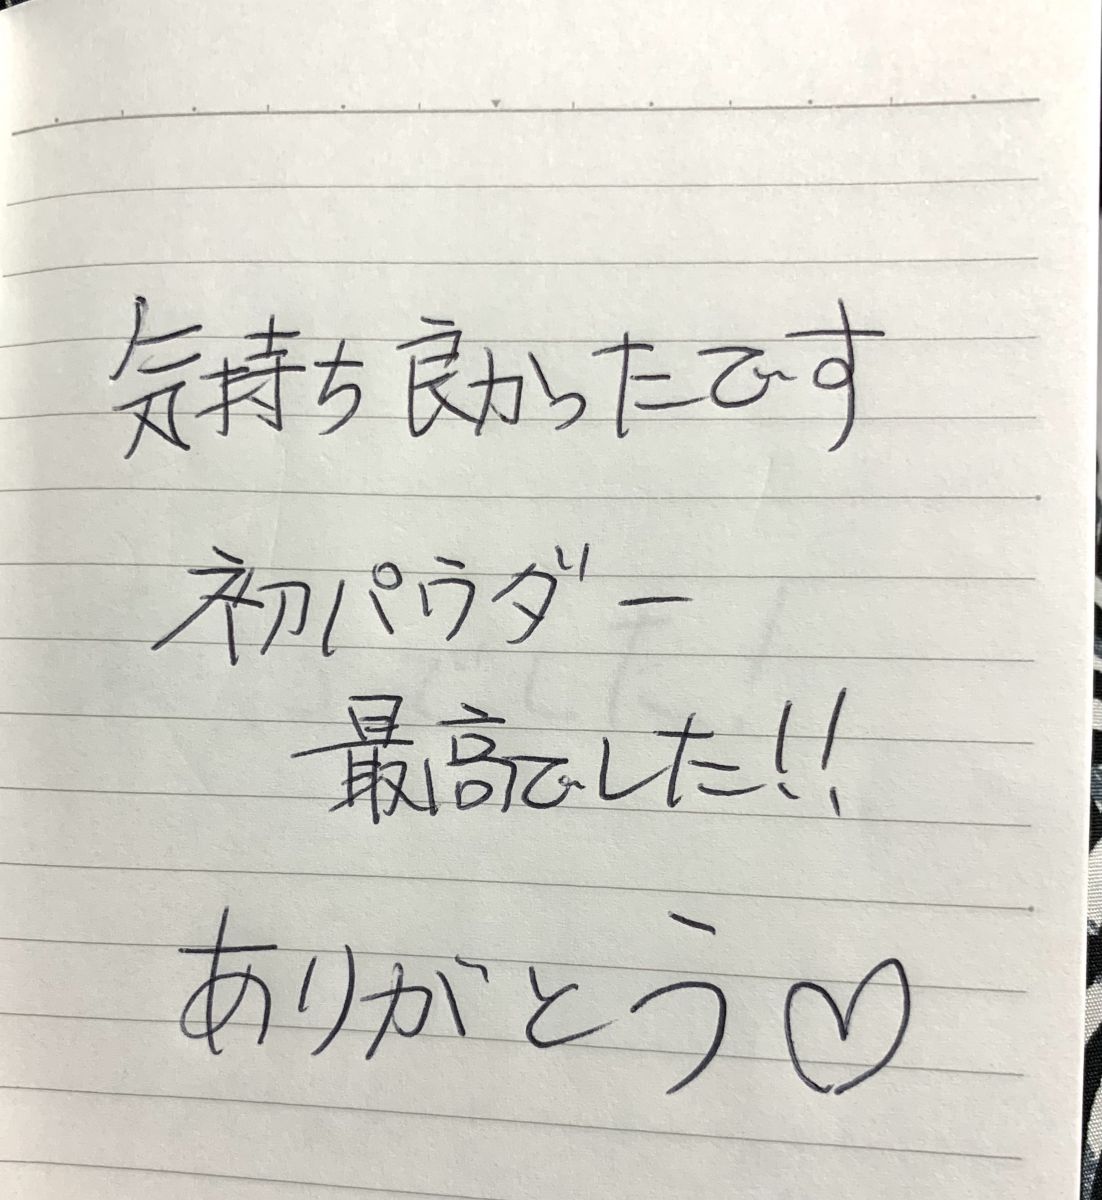 気持ち良かったです
初パウダー
最高でした!!
ありがとう♡